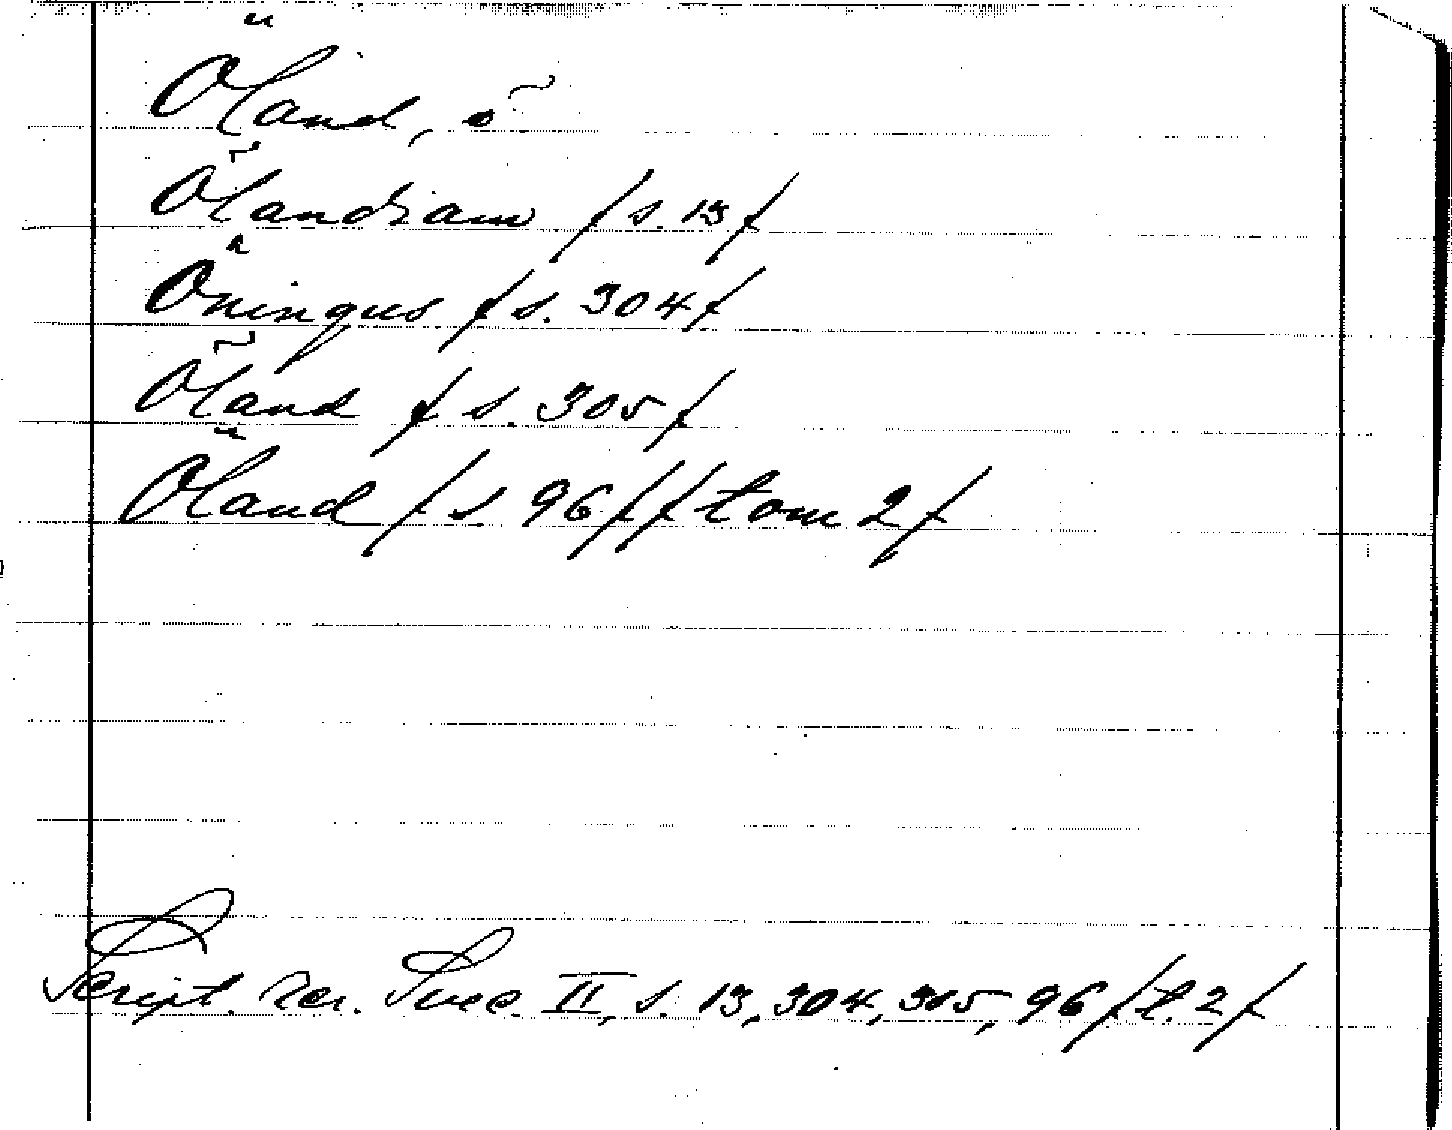 Öland, ö
Ölandiam /s. 13/
Öningus /s. 304/
Öland /s. 305/
Öland /s 96/ /tom 2/
Script. rer. Svec. II, s. 13, 304, 305, 96 /t. 2/